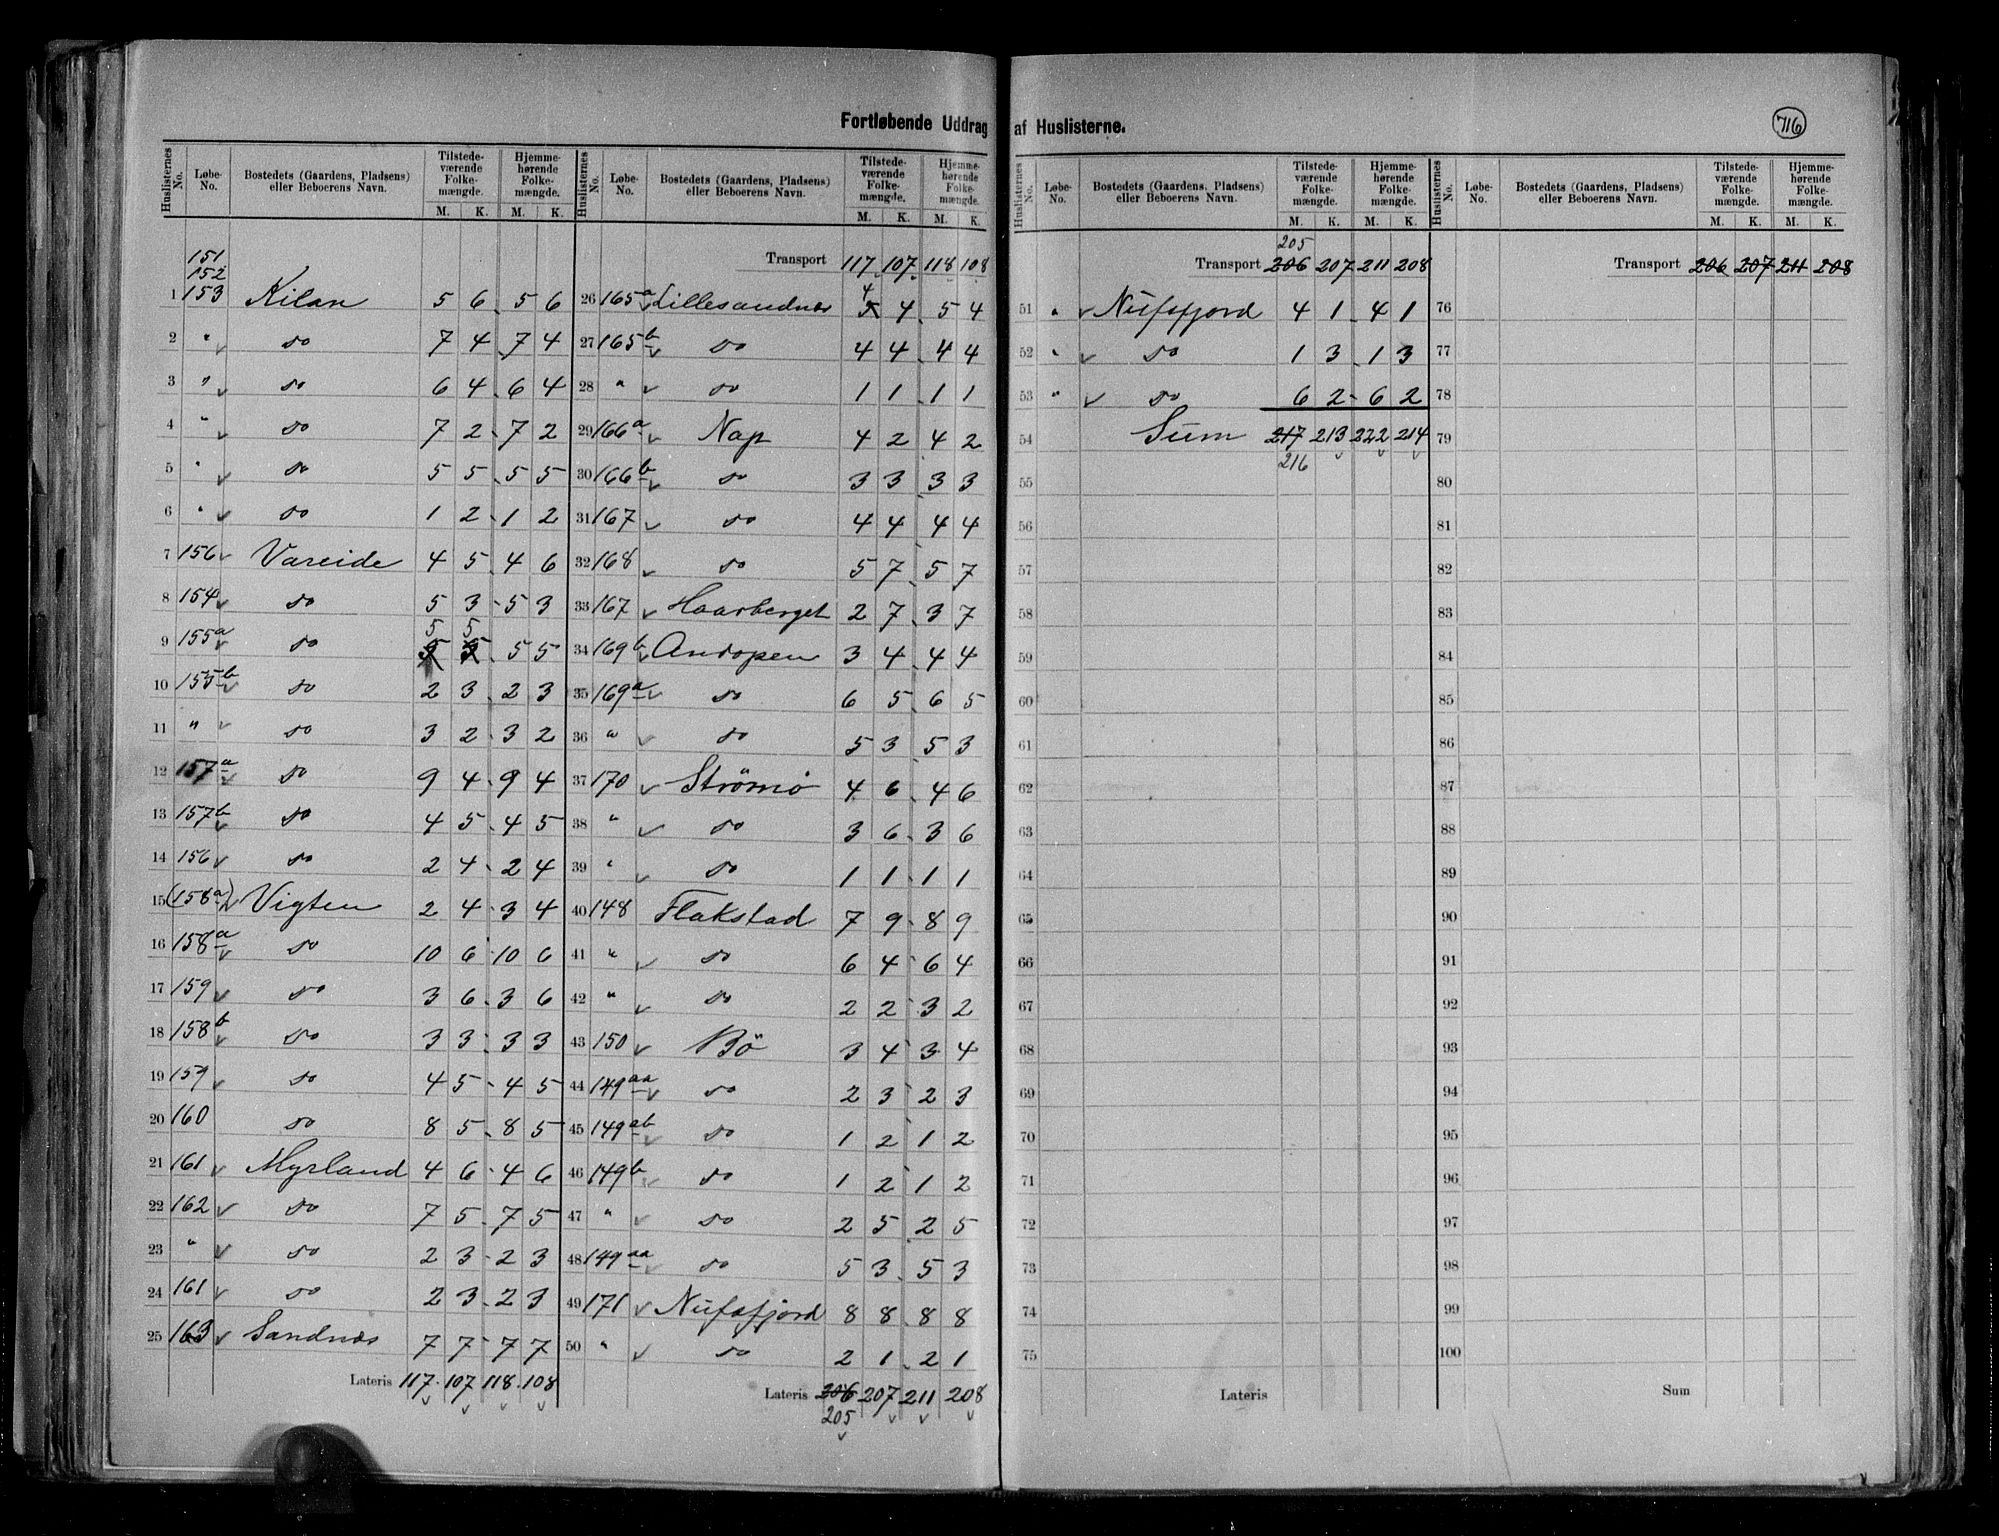 Fortløbende Uddrag af Huslisterne.
716
Huslisternes No. Løbe-No. Bostedets (Gaardens, Pladsens) eller Beboerens Navn. Tilstedeværende Folkemængde. M. K. Hjemmehørende Folkemængde. M. K.
151
152
1 153 Kilan 5 6 5 6
2 " do 7 4 7 4
3 " do 6 4 6 4
4 " do 7 2 7 2
5 " do 5 5 5 5
6 " do 1 2 1 2
7 156 Vareide 4 5 4 6
8 154 do 5 3 5 3
5 5
9 155a do 5 5
10 155b do 2 3 2 3
11 " do 3 2 3 2
12 157a do 9 4 9 4
13 157b do 4 5 4 5
14 156 do 2 4 2 4
15 (158a) Vigten 2 4 3 4
16 158a do 10 6 10 6
17 159 do 3 6 3 6
18 158b do 3 3 3 3
19 159 do 4 5 4 5
20 160 do 8 5 8 5
21 161 Myrland 4 6 4 6
22 162 do 7 5 7 5
23 " do 2 3 2 3
24 161 do 2 3 2 3
25 163 Sandnæs 7 7 7 7
Lateris 117 107 118 108
Huslisternes No. Løbe-No. Bostedets (Gaardens, Pladsens) eller Beboerens Navn. Tilstedeværende Folkemængde. M. K. Hjemmehørende Folkemængde. M. K.
Transport 117 107 118 108
4
26 165a Lillesandnæs 5 4 5 4
27 165b do 4 4 4 4
28 " do 1 1 1 1
29 166a Nap 4 2 4 2
30 166b do 3 3 3 3
31 167 do 4 4 4 4
32 168 do 5 7 5 7
33 167 Haarberget 2 7 3 7
34 169b Andopen 3 4 4 4
35 169a do 6 5 6 5
36 " do 5 3 5 3
37 170 Strömö 4 6 4 6
38 " do 3 6 3 6
39 " do 1 1 1 1
40 148 Flakstad 7 9 8 9
41 " do 6 4 6 4
42 " do 2 2 3 2
43 150 Bö 3 4 3 4
44 149aa do 2 3 2 3
45 149ab do 1 2 1 2
46 149b do 1 2 1 2
47 " do 2 5 2 5
48 149aa do 5 3 5 3
49 171 Nufsfjord 8 8 8 8
50 " do 2 1 2 1
Lateris 206 207 211 208
205
Huslisternes No. Løbe-No. Bostedets (Gaardens, Pladsens) eller Beboerens Navn. Tilstedeværende Folkemængde. M. K. Hjemmehørende Folkemængde. M. K.
205
Transport 206 207 211 208
51 " Nufsfjord 4 1 4 1
52 " do 1 3 1 3
53 " do 6 2 6 2
54 Sum 217 213 222 214
216
55
56
57
58
59
60
61
62
63
64
65
66
67
68
69
70
71
72
73
74
75
Lateris
Huslisternes No. Løbe-No. Bostedets (Gaardens, Pladsens) eller Beboerens Navn. Tilstedeværende Folkemængde. M. K. Hjemmehørende Folkemængde. M. K.
Transport 206 207 211 208
76
77
78
79
80
81
82
83
84
85
86
87
88
89
90
91
92
93
94
95
96
97
98
99
100
Sum